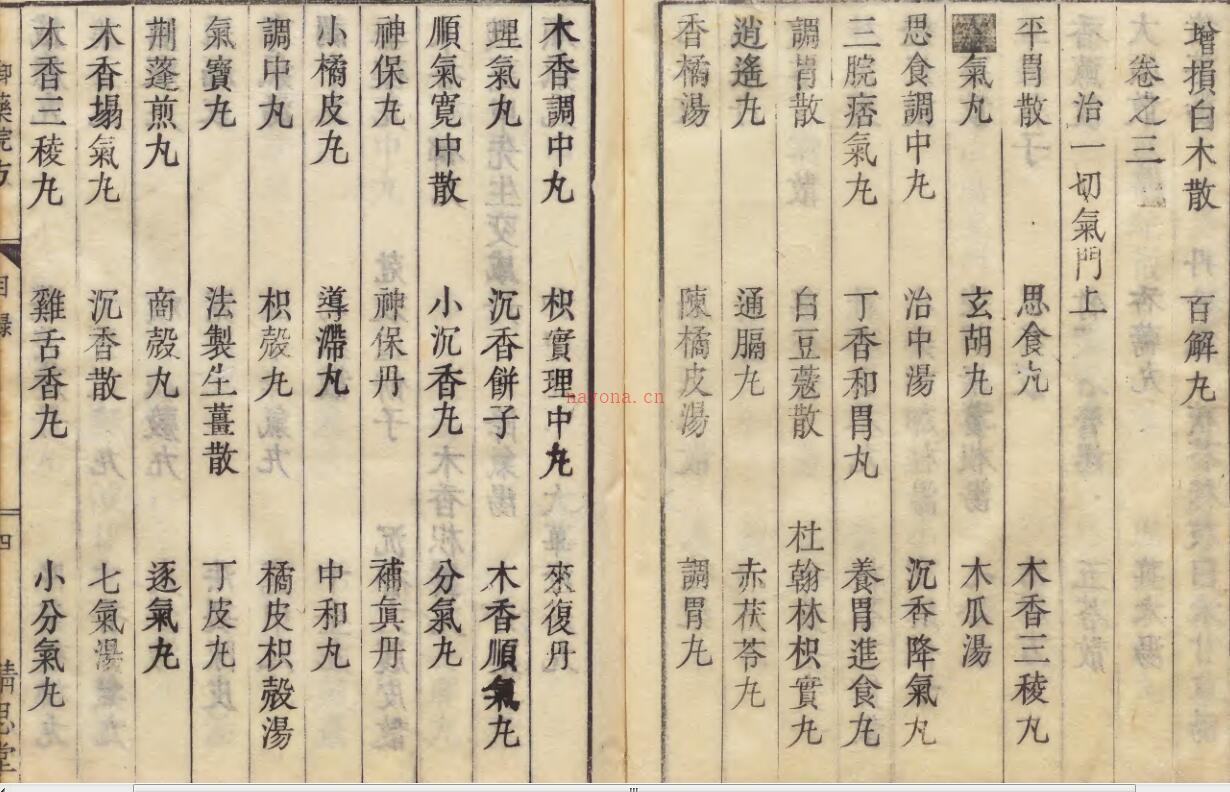 增損白木散 百解丸
卷之三
治一切氣門上
平胃散 思食丸 木香三稜丸
氣丸 玄胡丸 木瓜湯
思食調中丸 治中湯 沉香降氣丸
三脘痞氣丸 丁香和胃丸 養胃進食丸
調胃散 白豆蔻散 杜翰林枳實丸
逍遙丸 通膈丸 赤茯苓丸
香橘湯 陳橘皮湯 調胃丸
木香調中丸 枳實理中丸 來復丹
理氣丸 沉香餅子 木香順氣丸
順氣寬中散 小沉香丸 分氣丸
神保丸 神保丹 補眞丹
小橘皮丸 導滯丸 中和丸
調中丸 枳殼丸 橘皮枳殼湯
氣寶丸 法製生薑散 丁皮丸
荆蓬煎丸 商殼丸 逐氣丸
木香塌氣丸 沉香散 七氣湯
木香三稜丸 雞舌香丸 小分氣丸
御藥院方 目錄 四 精思堂
nayona.cn